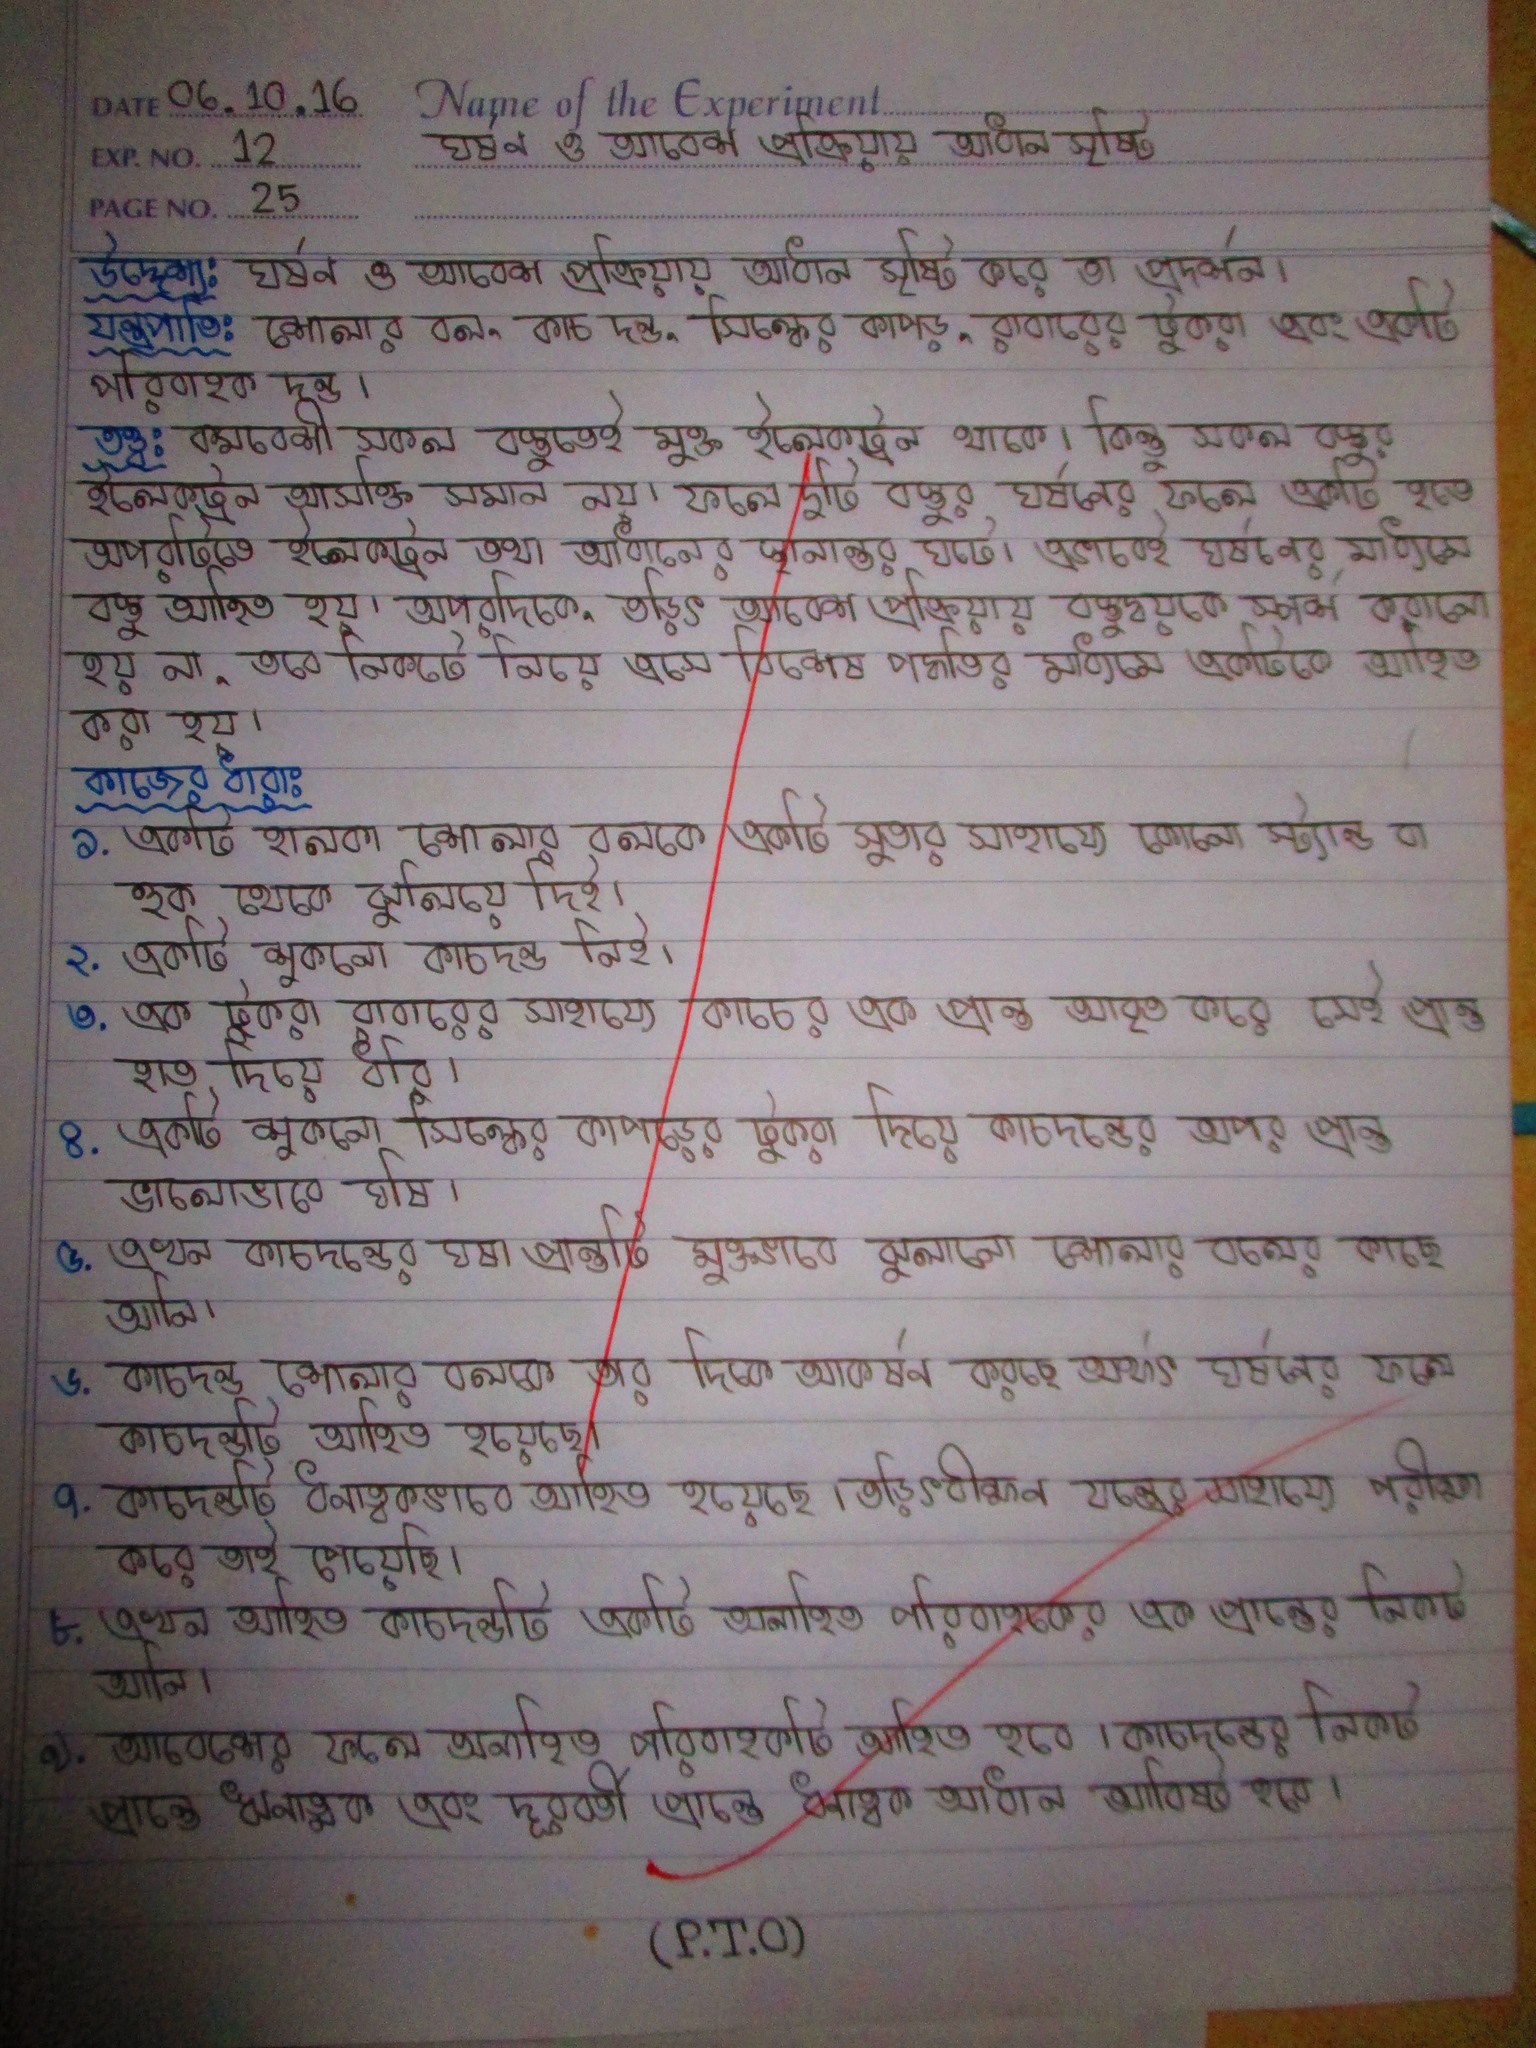 DATE 06.10.16 Name of the Experiment
EXP. NO. 12 ঘর্ষন ও আবেশ প্রক্রিয়ায় আধান সৃষ্টি
PAGE NO. 25
উদ্দেশ্য: ঘর্ষন ও আবেশ প্রক্রিয়ায় আধান সৃষ্টি করে তা প্রদর্শন।
যন্ত্রপাতি: শোলার বল, কাচ দন্ড, সিল্কের কাপড়, রাবারের টুকরা এবং একটি
পরিবাহক দন্ড।
তত্ত্ব: কমবেশী সকল বস্তুতেই মুক্ত ইলেকট্রন থাকে। কিন্তু সকল বস্তুর
ইলেকট্রন আসক্তি সমান নয়। ফলে দুটি বস্তুর ঘর্ষনের ফলে একটি হতে
অপরটিতে ইলেকট্রন তথা আধানের স্থানান্তর ঘটে। এভাবেই ঘর্ষনের মাধ্যমে
বস্তু আহিত হয়। অপরদিকে, তড়িৎ আবেশ প্রক্রিয়ায় বস্তুদ্বয়কে স্পর্শ করানো
হয় না, তবে নিকটে নিয়ে এসে বিশেষ পদ্ধতির মাধ্যমে একটিকে আহিত
করা হয়।
কাজের ধারা:
১. একটি হালকা শোলার বলকে একটি সুতার সাহায্যে কোনো স্ট্যান্ড বা
হুক থেকে ঝুলিয়ে দিই।
২. একটি শুকনো কাচদন্ড নিই।
৩. এক টুকরা রাবারের সাহায্যে কাচের এক প্রান্ত আবৃত করে সেই প্রান্ত
হাত দিয়ে ধরি।
৪. একটি শুকনো সিল্কের কাপড়ের টুকরা দিয়ে কাচদন্ডের অপর প্রান্ত
ভালোভাবে ঘষি।
৫. এখন কাচদন্ডের ঘষা প্রান্তটি মুক্তভাবে ঝুলানো শোলার বলের কাছে
আনি।
৬. কাচদন্ড শোলার বলকে তার দিকে আকর্ষন করছে অর্থাৎ ঘর্ষনের ফলে
কাচদন্ডটি আহিত হয়েছে।
৭. কাচদন্ডটি ধনাত্বকভাবে আহিত হয়েছে। তড়িৎবীক্ষন যন্ত্রের সাহায্যে পরীক্ষা
করে তাই পেয়েছি।
৮. এখন আহিত কাচদন্ডটি একটি অনাহিত পরিবাহকের এক প্রান্তের নিকট
আনি।
৯. আবেশের ফলে অনাহিত পরিবাহকটি আহিত হবে। কাচদন্ডের নিকট
প্রান্তে ঋনাত্বক এবং দূরবর্তী প্রান্তে ধনাত্বক আধান আবিষ্ট হবে।
(P.T.O)